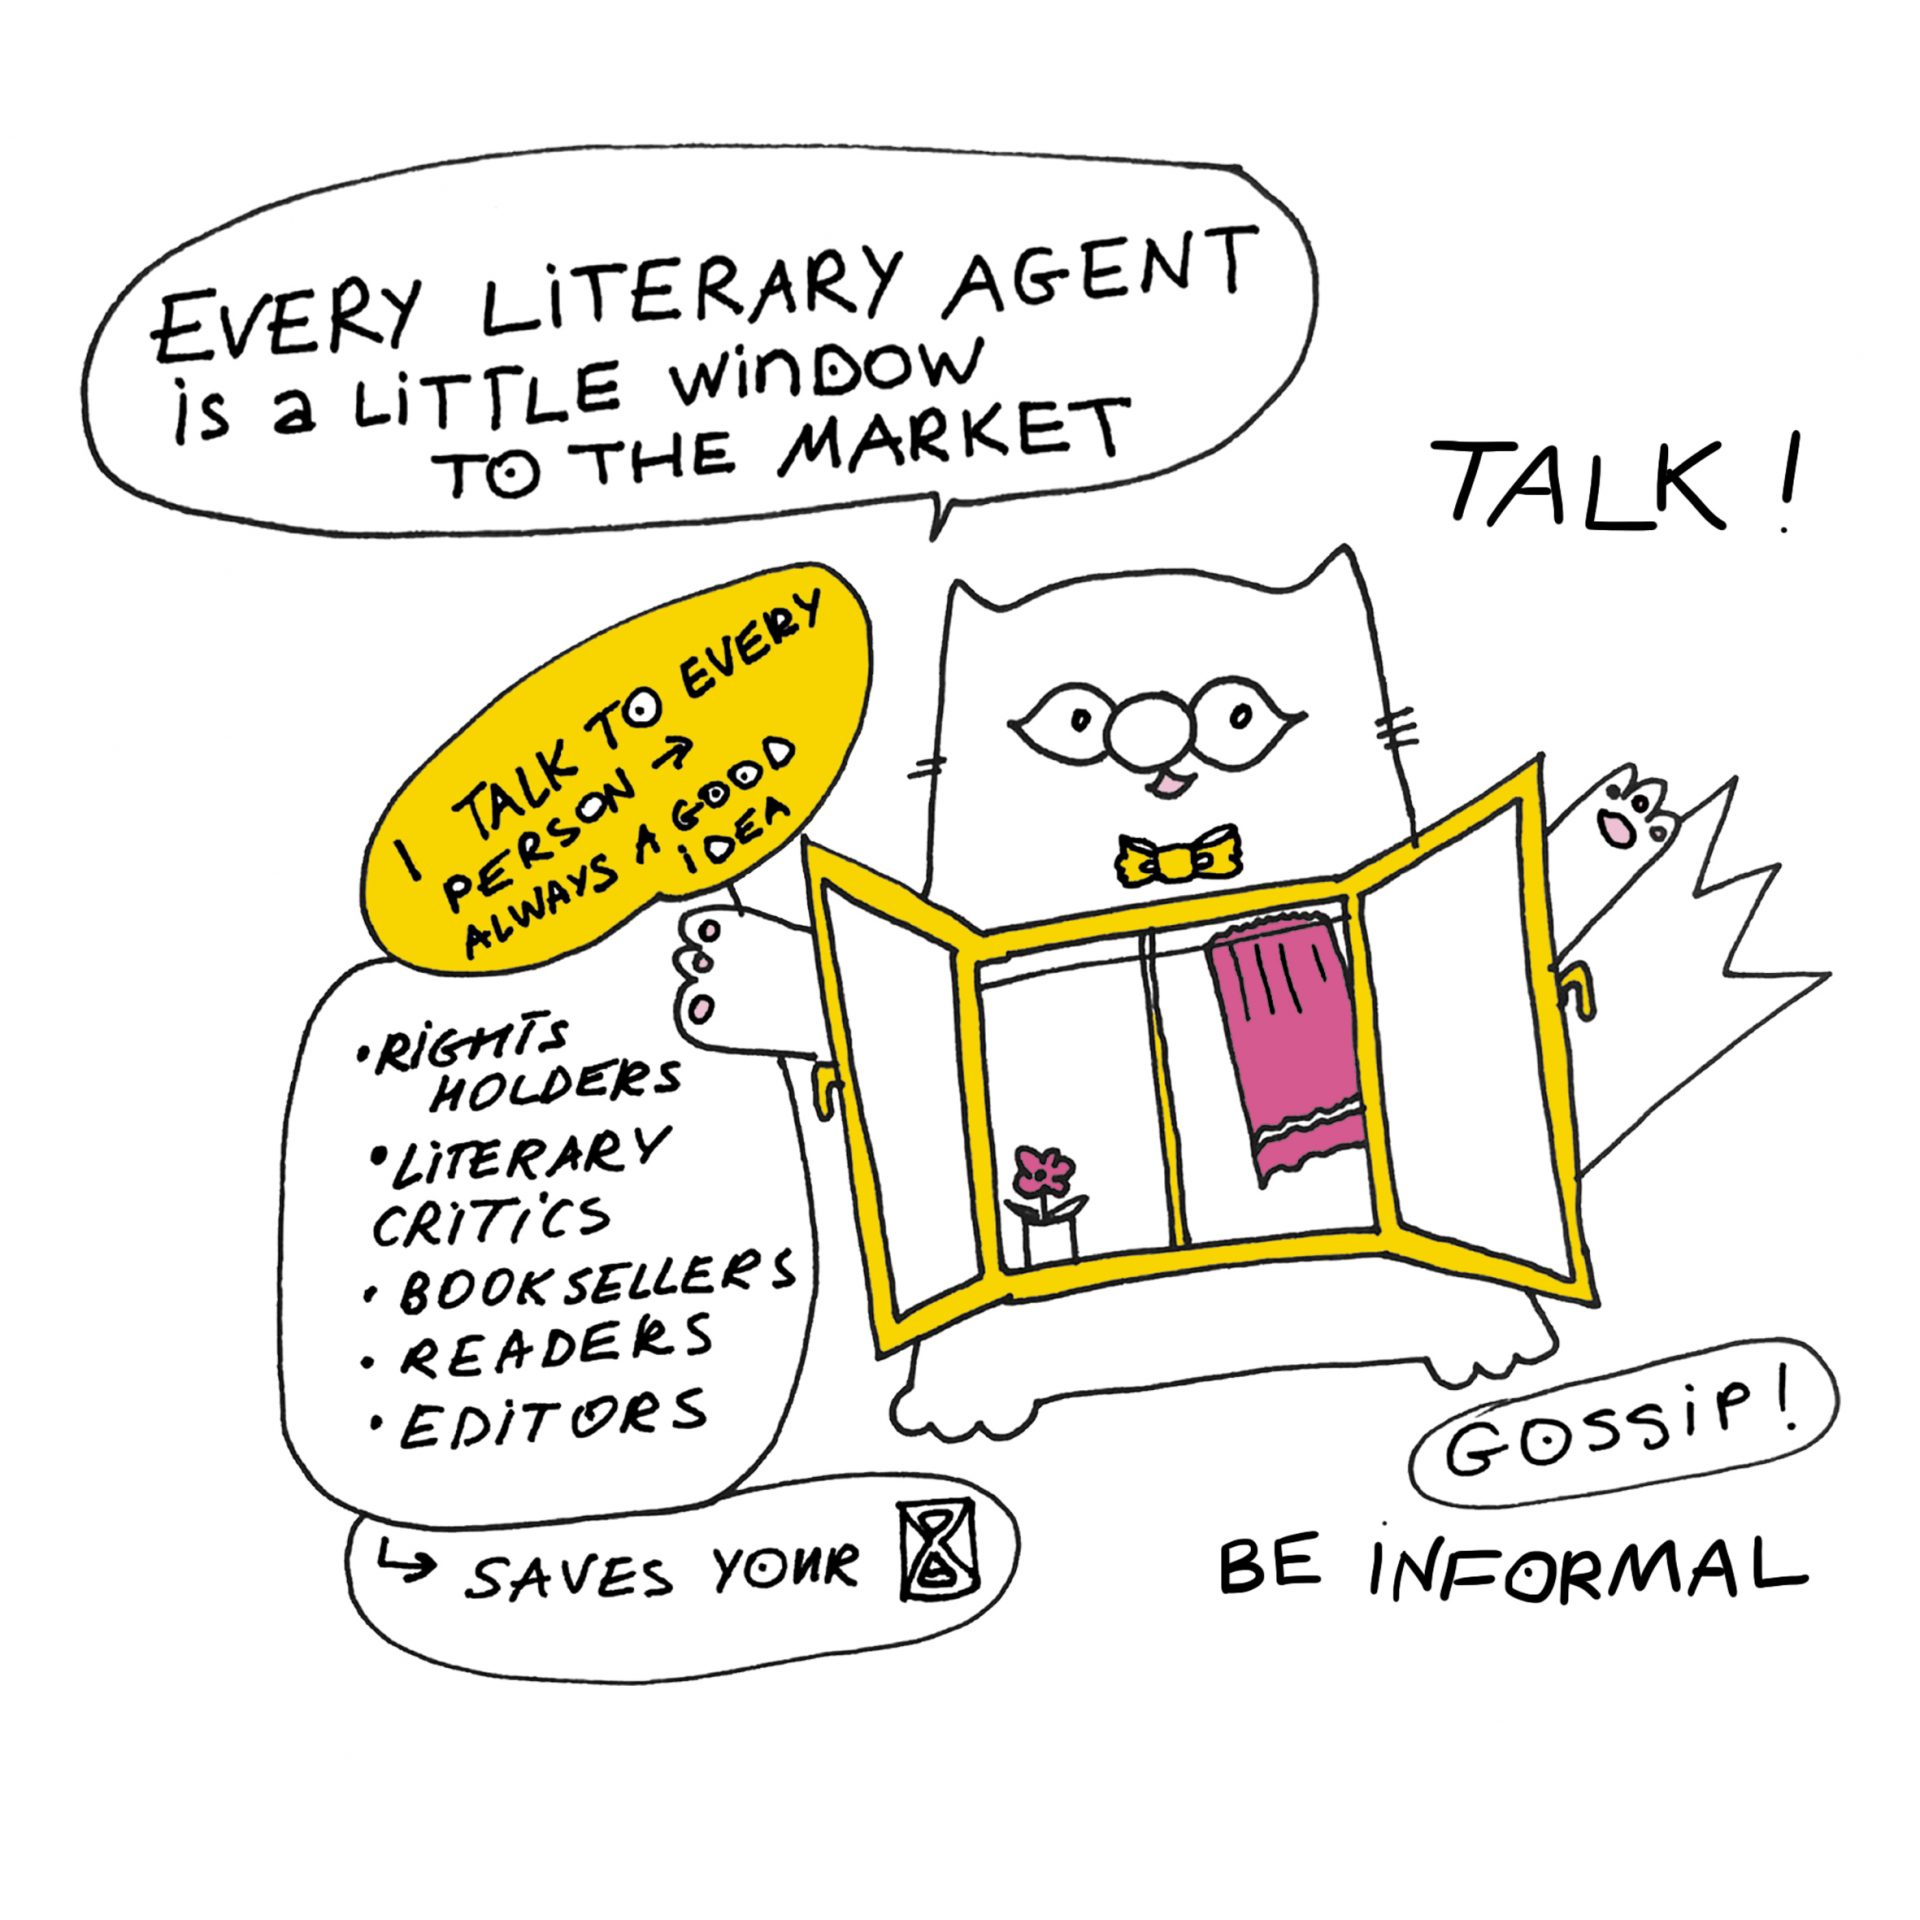 EVERY LITERARY AGENT
is a LITTLE WINDOW
TO THE MARKET
TALK!
I TALK TO EVERY
PERSON ↗
ALWAYS A GOOD
IDEA
•RIGHTS
HOLDERS
•LITERARY
CRITICS
•BOOKSELLERS
•READERS
•EDITORS
↳ SAVES YOUR
GOSSIP!
BE INFORMAL